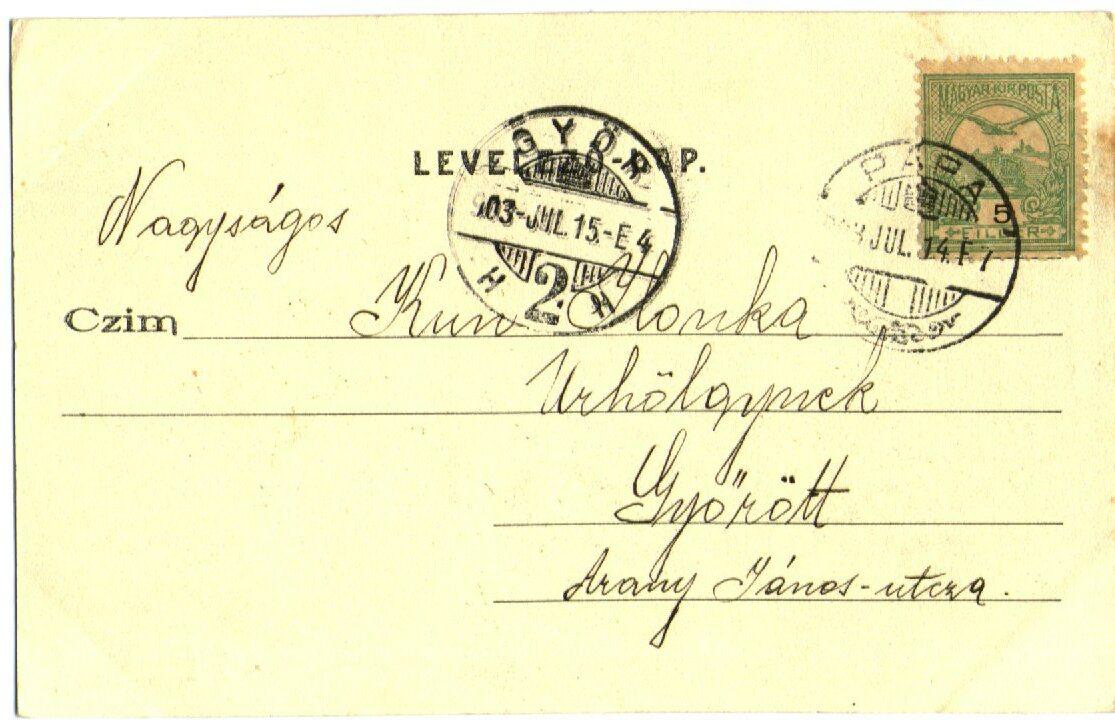 LEVELEZŐ-LAP.
MAGYAR KIR. POSTA
5
FILLÉR
GYŐR
903-JUL.15.-E 4
H 2. H
JUL. 14. E 7
Nagyságos
Czim Kun Ilonka
Urhölgynek
Győrött
Arany János-utcza.